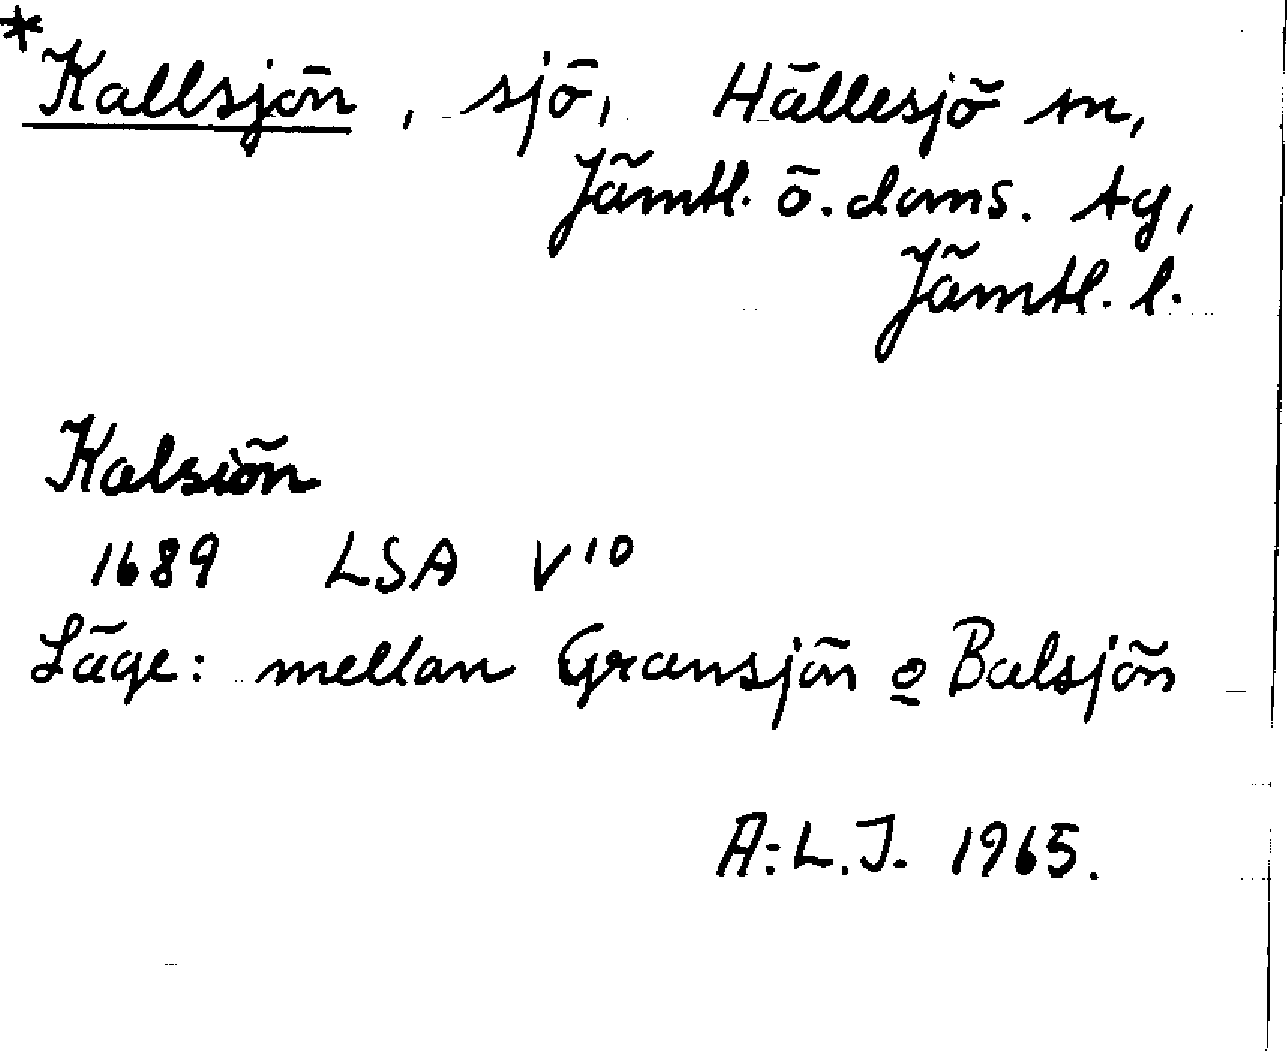 *Kallsjön, sjö, Hällesjö sn,
Jämtl. ö. doms. tg,
Jämtl. l.
Kalsiön
1689 LSA V 10
Läge: mellan Gransjön o Balsjön
A:L.J. 1965.